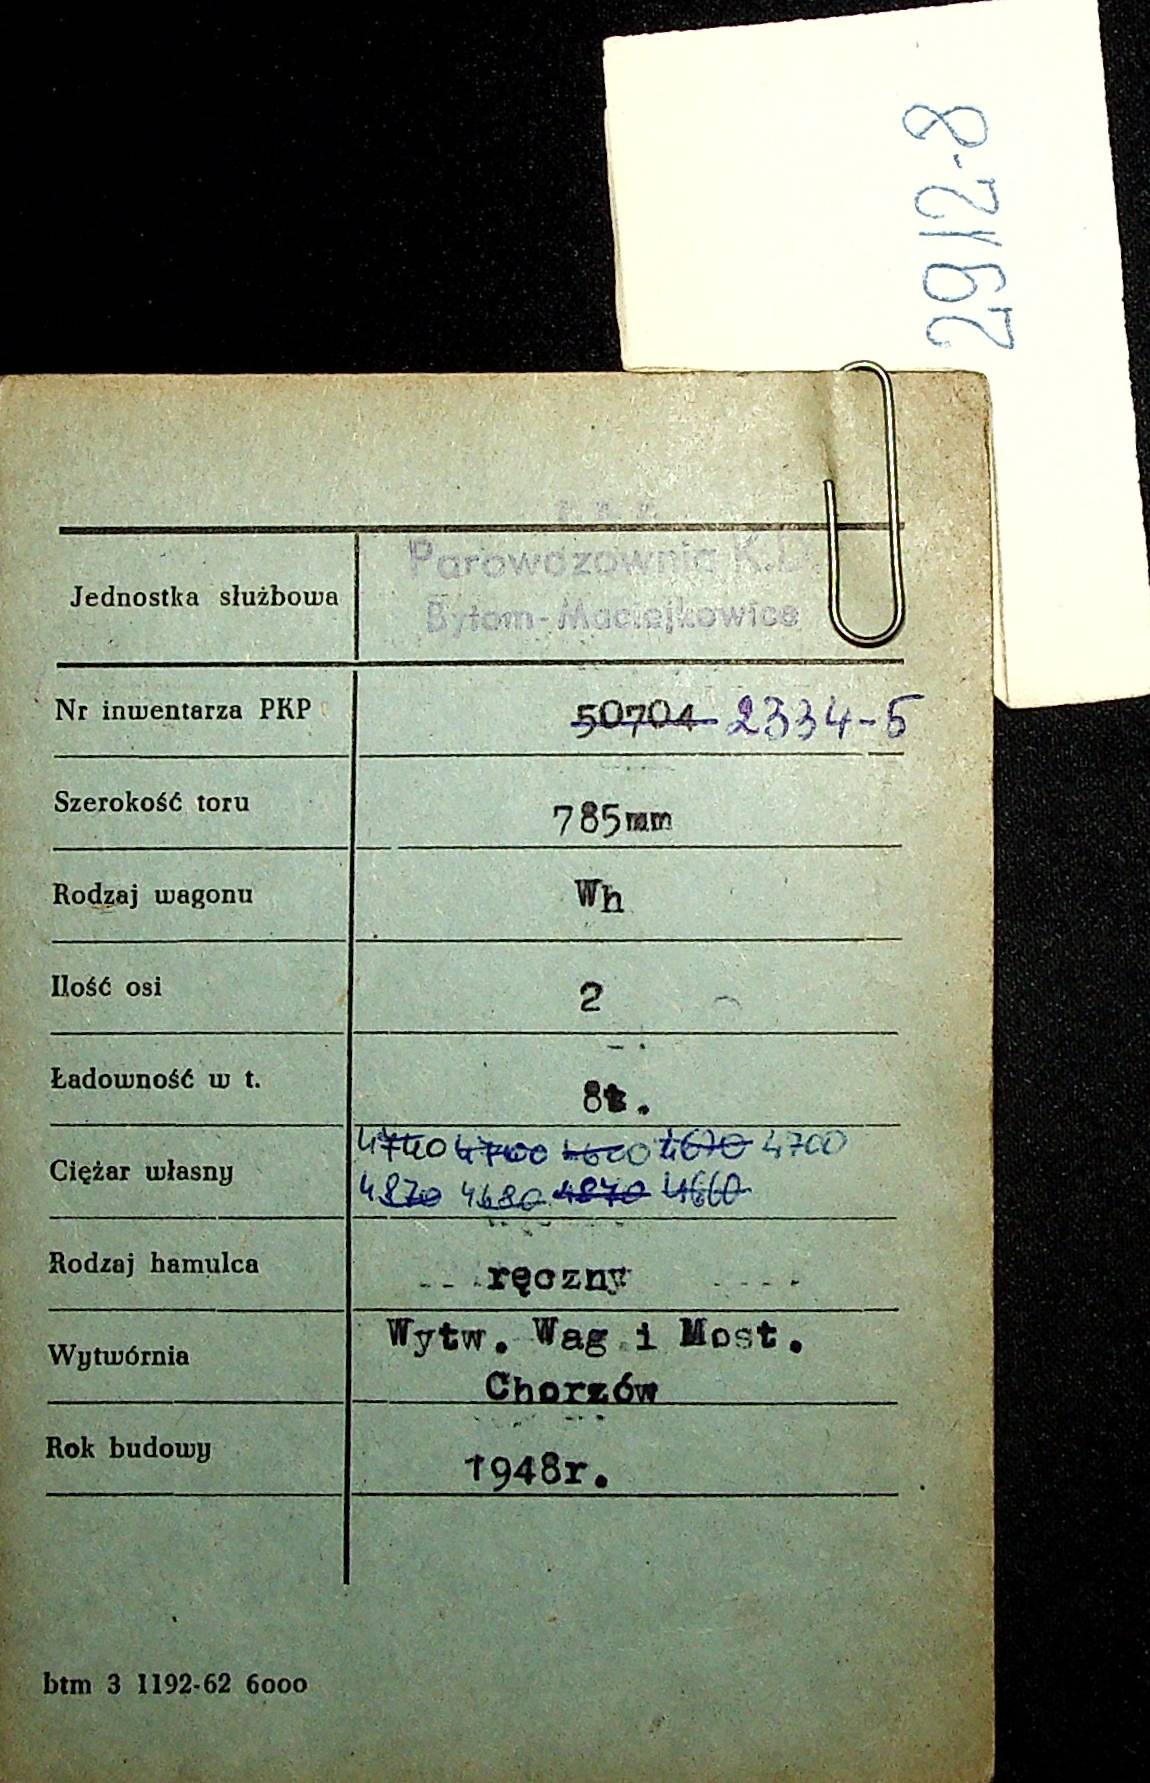 2912-8
Jednostka służbowa
Parowozownia K.D.
Bytom-Maciejkowice
Nr inwentarza PKP 50704 2334-5
Szerokość toru 785mm
Rodzaj wagonu Wh
Ilość osi 2
Ładowność w t. 8t.
Ciężar własny
4740 4700 4670 4700
4870 4680 4840 4660
Rodzaj hamulca ręczny
Wytwórnia Wytw. Wag i Most.
Chorzów
Rok budowy 1948r.
btm 3 1192-62 6000